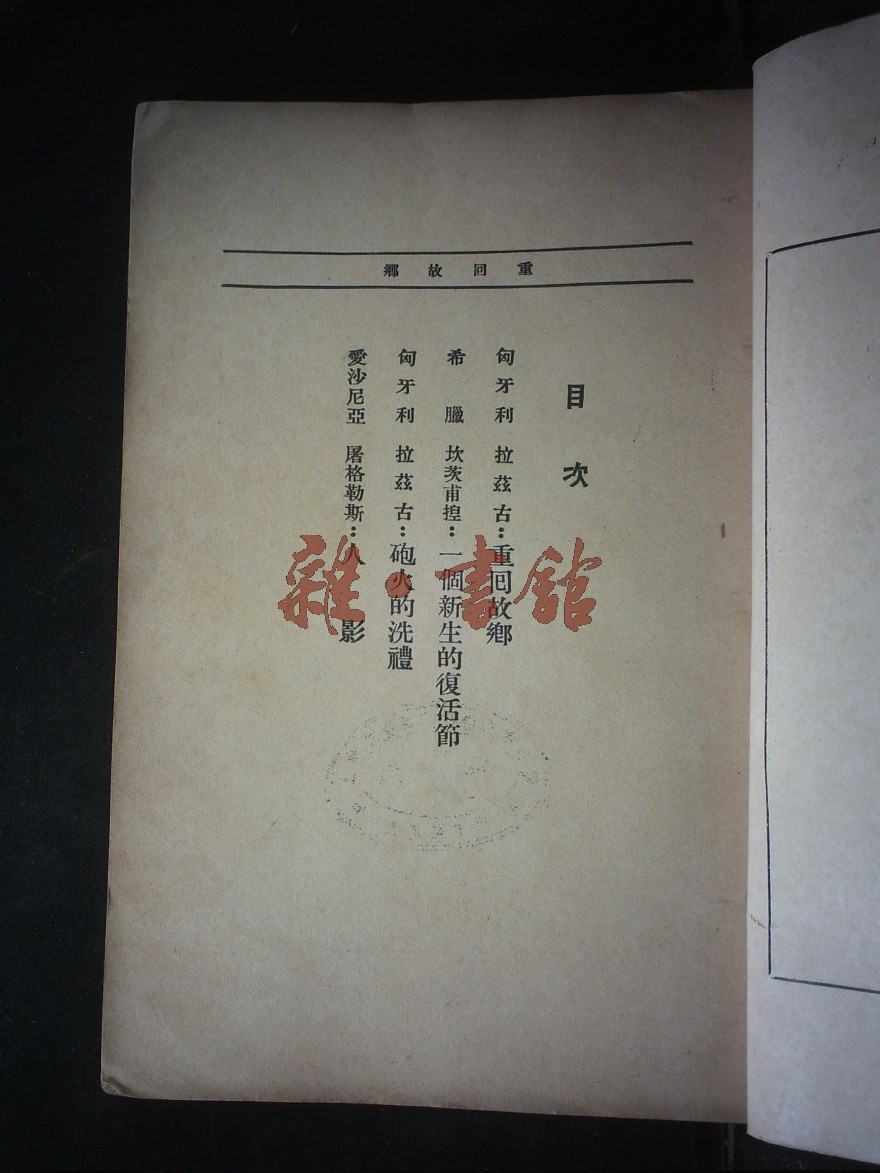 重回故鄉
目次
匈牙利 拉茲古：重囘故鄉
希臘 坎茨甫揘：一個新生的復活節
匈牙利 拉茲古：砲火的洗禮
愛沙尼亞 屠格勒斯：人影
雜·書館